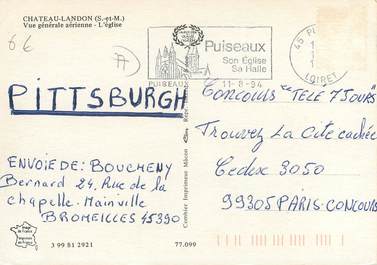 CHATEAU-LANDON (S.-et-M.)
Vue générale aérienne - L'église
6€
A
Puiseaux
Son Église
Sa Halle
PUISEAUX
11-8-94
45 PU
LOIRET
PITTSBURGH
ENVOIE DE: BOUCHENY
Bernard 24, Rue de la
chapelle. Mainville
BROMEILLES 45390
3 99 81 2921
77.099
Combier Imprimeur Mâcon
Concours "TELÉ 7 JOURS"
Trouvez La Cité cachée
Cedex 3050
99305 PARIS-CONCOURS